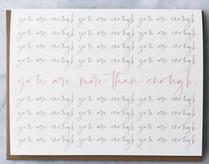 you are enough you are enough you are enough
you are enough you are enough you are enough
you are enough you are enough you are enough
you are enough you are enough you are enough
you are more than enough
you are enough you are enough you are enough
you are enough you are enough you are enough
you are enough you are enough you are enough
you are enough you are enough you are enough